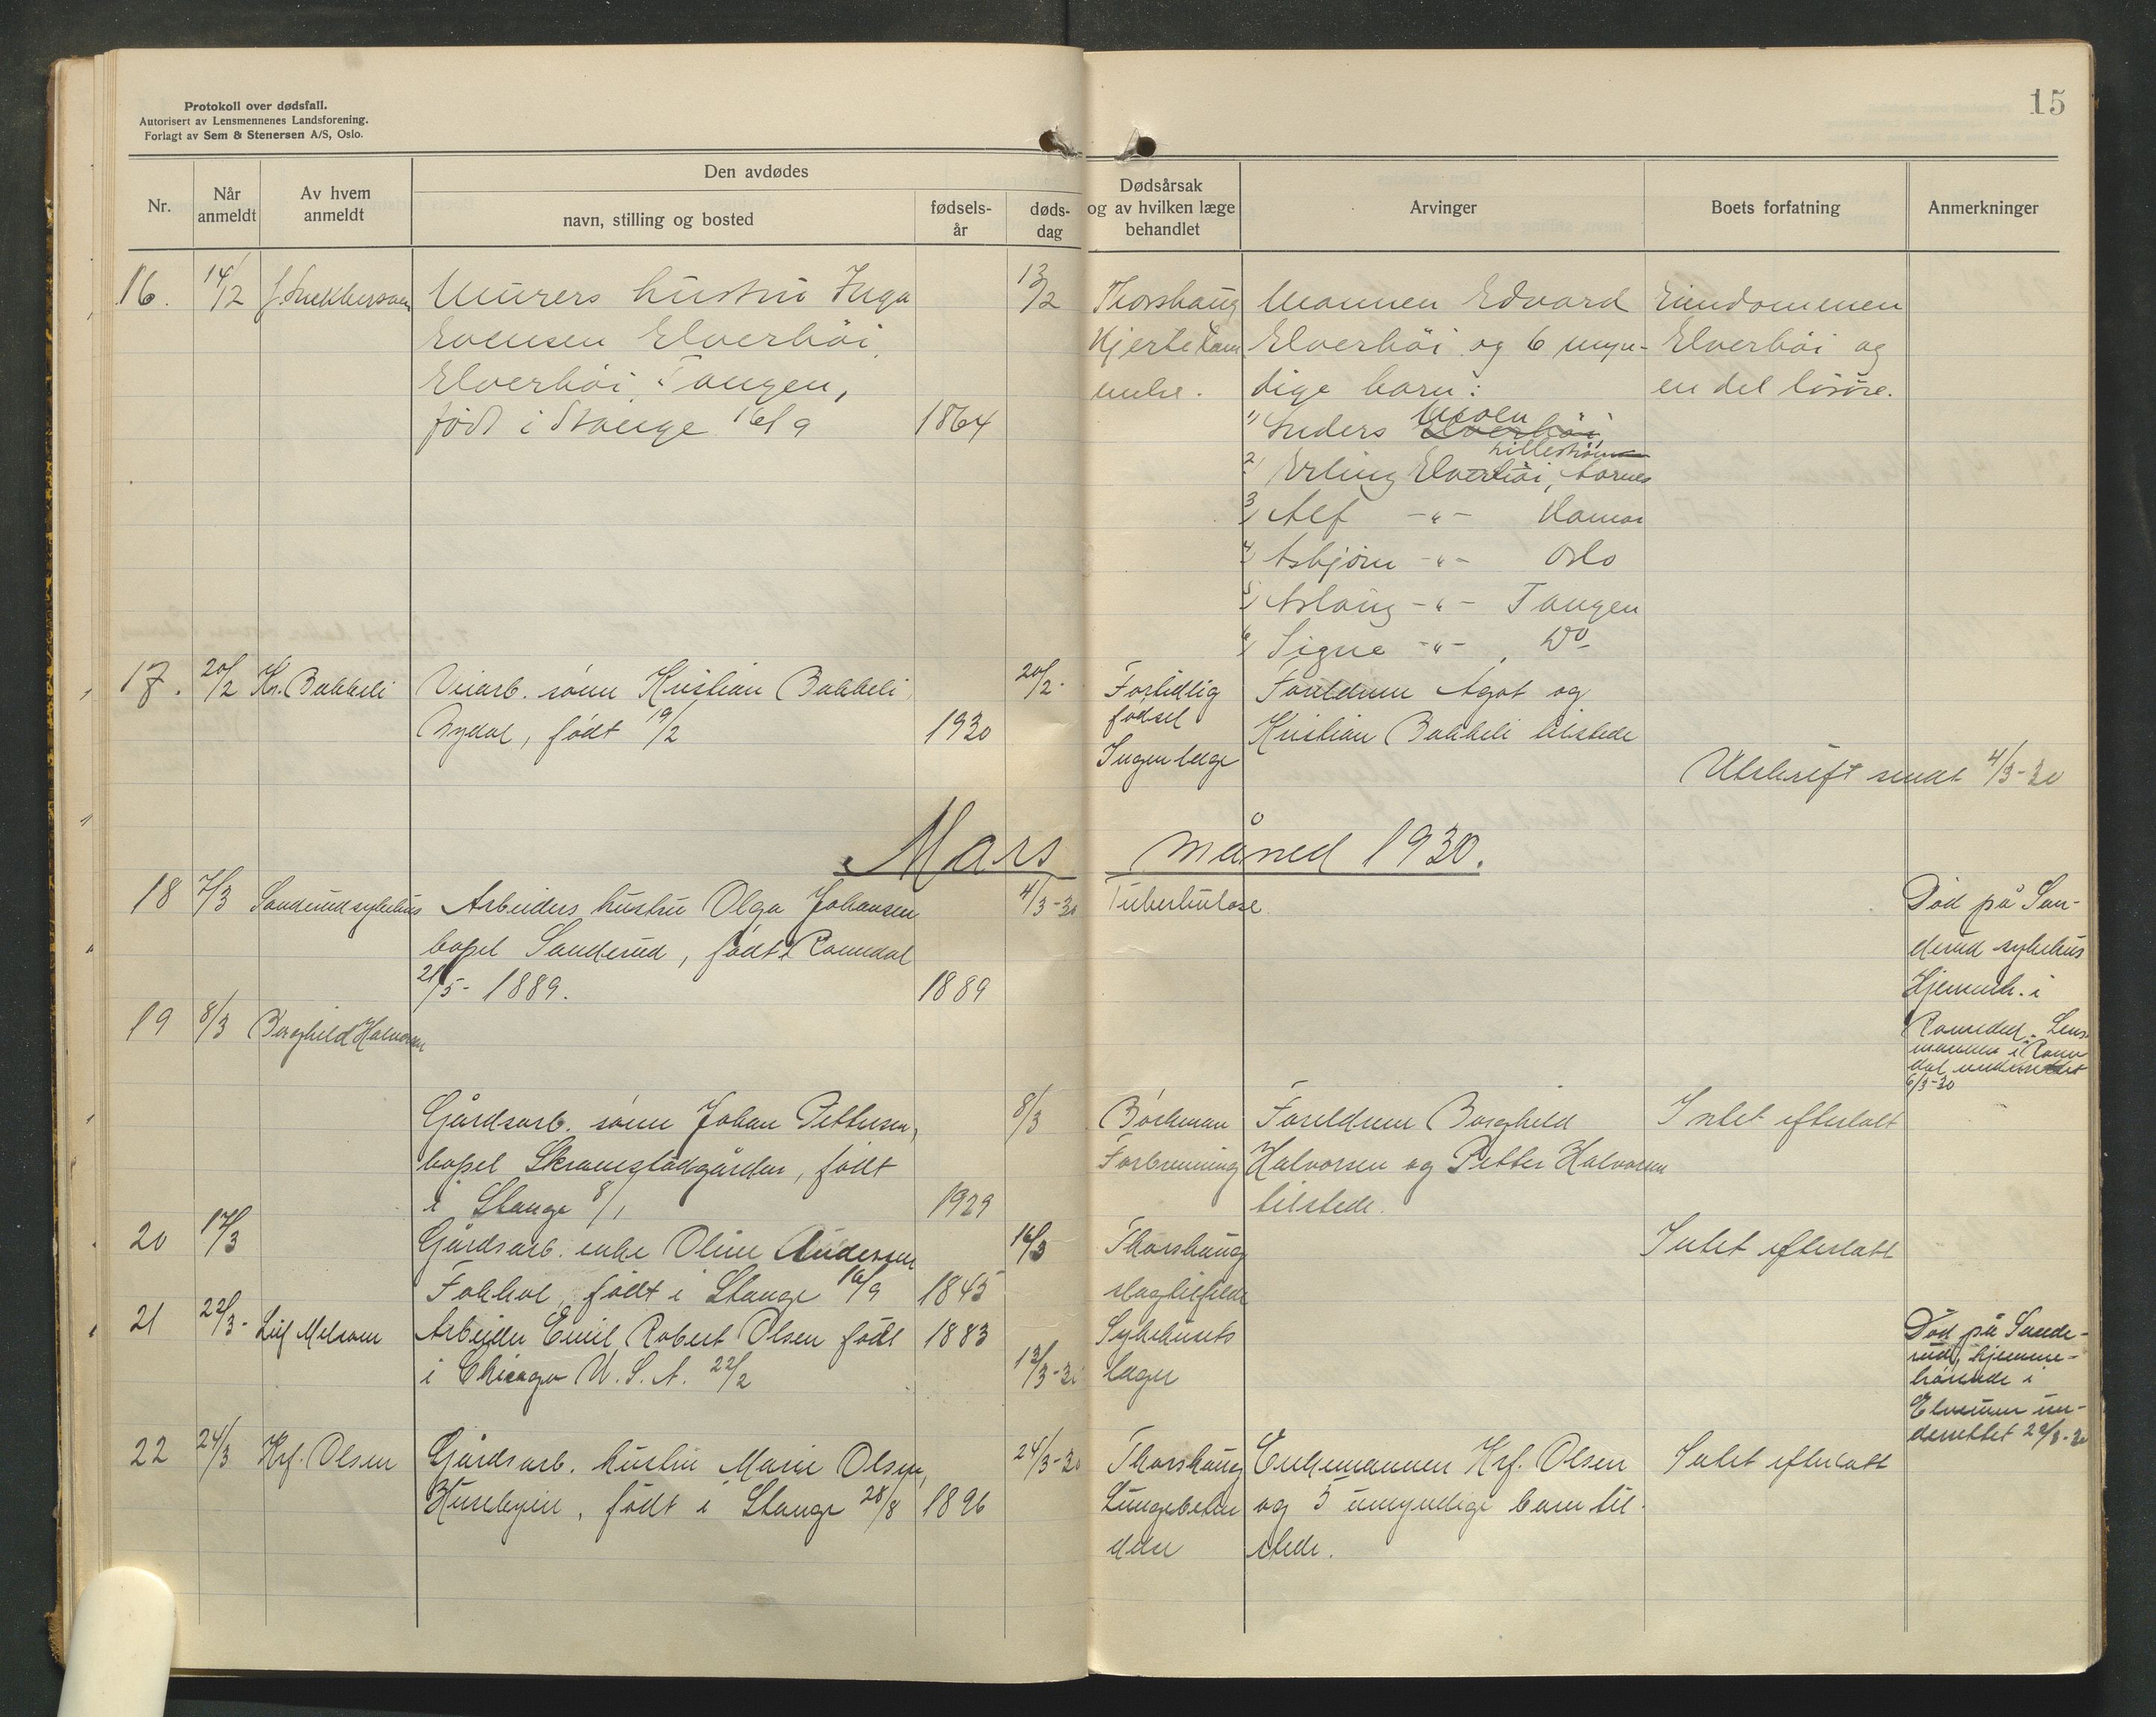 Protokoll over dødsfall.
Autorisert av Lensmennenes Landsforening.
Forlagt av Sem & Stenersen A/S, Oslo.
15
Nr.
Når anmeldt
Av hvem anmeldt
Den avdødes
navn, stilling og bosted
fødsels-år
døds-dag
Dødsårsak og av hvilken læge behandlet
Arvinger
Boets forfatning
Anmerkninger
16. 14/2 Murers hustru Inga 13/2 Thorshaug Mannen Edvard Eiendommen
Evensen Elverhöi, Hjertelam Elverhöi og 6 myn- Elverhöi og
Elverhöi, Tangen, melse. dige barn: en del lösöre.
född i Stange 16/9 1864 1) Anders Moen Elverhöi
Lilleström
2) Erling Elverhöi, Aarnes
3) Alf -"- Hamar
4) Asbjörn -"- Oslo
5) Aslaug -"- Tangen
6) Signe -"- Do
17. 20/2 Kr. Bakkeli Veiarb. sönn Kristian Bakkeli 20/2. Fortidlig Foreldrene Agot og
Bydal, födt 19/2 1930 födsel Kristian Bakkeli tilstede
Ingen læge
Utskrift sendt 4/3-30
Mars måned 1930.
18 7/3 Sanderud sykehus Arbeiders hustru Olga Johansen 4/3-30 Tuberkulose Död på San-
bopel Sanderud, födt i Romedal derud sykehus
21/5- 1889. 1889 Hjemmeh. i
19 8/3 Borghild Halvorsen Romedal. Lens-
mannen i Rome
dal underrettet
6/3-30
Gårdsarb. sönn Johan Pettersen, 8/3 Foreldrene Borghild Intet efterlatt
bopel Skramstadgården, födt Forbrenning Halvorsen og Petter Halvorsen
i Stange 8/1 1929 tilstede.
20 17/3 Gårdsarb. enke Oline Andersen 16/3 Thorshaug Intet efterlatt
Fokhol, födt i Stange 16/9 1845 slagtilfelde
21 22/3- Leif Melsom Arbeider Emil Robert Olsen födt 1883 Sykehusets Död på Sande-
i Chicago U.S.A. 22/2 13/3-30 læger rud, hjemme-
hörende i
Elverum un-
derrettet 22/3-30
22 24/3 Krf. Olsen Gårdsarb. hustru Marie Olsen, 24/3-30 Thorshaug Enkemannen Krf. Olsen Intet efterlatt
födt i Stange 28/8 1896 Lungebeten og 5 umyndige barn til-
delse stede.